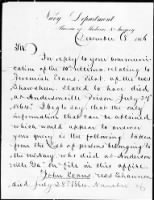 Navy Department
Bureau of Medicine & Surgery
December 6 186
Sir
In reply to your communi-
cation of the relating to
Jeremiah Evans, Pilot, of the
Shawsheen, stated to have died at
Andersonville Prison July 27th
1864. I beg to say, that the only
information that can be obtained
which would appear to answer
your query is the following taken
from the list of persons belonging
to the military who died at Anderson-
ville Ga on file in this office.
"John Evans Shawsheen
died July 28th 1864 Number of